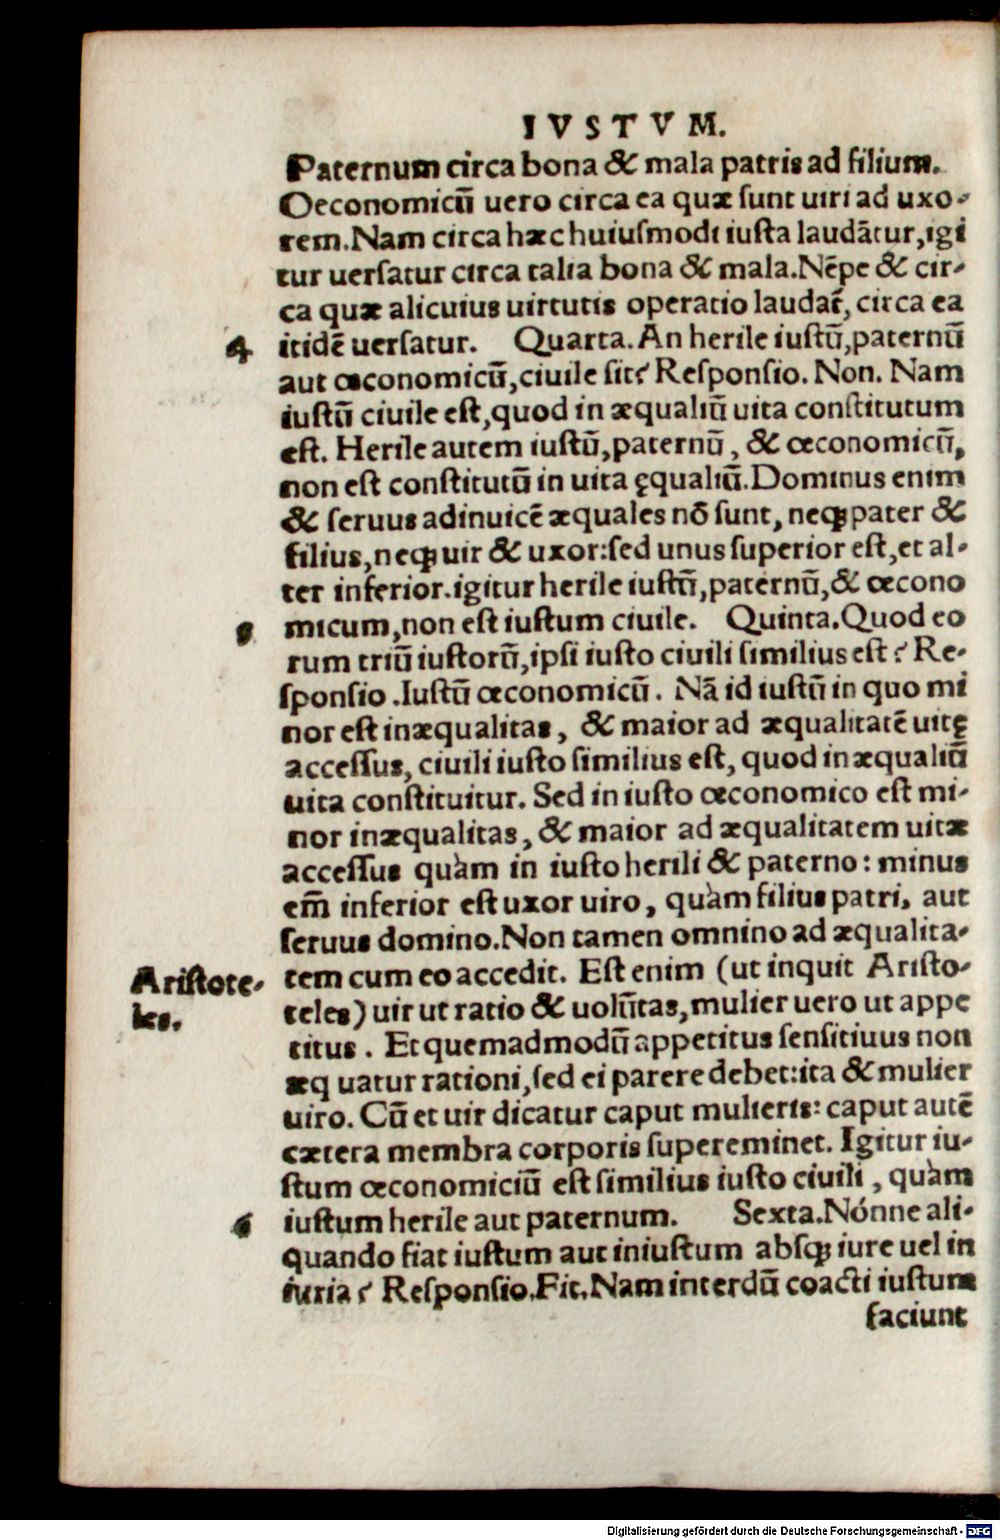 IVSTVM.
Paternum circa bona & mala patris ad filium.
Oeconomicū uero circa ea quæ ſunt uiri ad uxo-
rem. Nam circa hæc huiuſmodi iuſta laudātur, igi
tur uerſatur circa talia bona & mala. Nēpe & cir-
ca quæ alicuius uirtutis operatio laudat̄, circa ea
4 itidē uerſatur. Quarta. An herile iuſtū, paternū
aut œconomicū, ciuile ſit? Reſponſio. Non. Nam
iuſtū ciuile eſt, quod in æqualiū uita conſtitutum
eſt. Herile autem iuſtū, paternū, & œconomicū,
non eſt conſtitutū in uita ęqualiū. Dominus enim
& ſeruus adinuicē æquales nō ſunt, neqꝫ pater &
filius, neqꝫ uir & uxor: ſed unus ſuperior eſt, et al-
ter inferior. igitur herile iuſtū, paternū, & œcono
5 micum, non eſt iuſtum ciuile. Quinta. Quod eo
rum triū iuſtorū, ipſi iuſto ciuili ſimilius eſt? Re-
ſponſio. Iuſtū œconomicū. Nā id iuſtū in quo mi
nor eſt inæqualitas, & maior ad æqualitatē uitę
acceſſus, ciuili iuſto ſimilius eſt, quod in æqualiū
uita conſtituitur. Sed in iuſto œconomico eſt mi-
nor inæqualitas, & maior ad æqualitatem uitæ
acceſſus quàm in iuſto herili & paterno: minus
em̄ inferior eſt uxor uiro, quàm filius patri, aut
ſeruus domino. Non tamen omnino ad æqualita-
tem cum eo accedit. Eſt enim (ut inquit Ariſto-
Ariſtote-
les.
teles) uir ut ratio & uolūtas, mulier uero ut appe
titus. Et quemadmodū appetitus ſenſitiuus non
æquatur rationi, ſed ei parere debet: ita & mulier
uiro. Cū et uir dicatur caput mulieris: caput autē
cætera membra corporis ſupereminet. Igitur iu-
ſtum œconomiciū eſt ſimilius iuſto ciuili, quàm
6 iuſtum herile aut paternum. Sexta. Nónne ali-
quando fiat iuſtum aut iniuſtum abſqꝫ iure uel in
iuria? Reſponſio. Fit. Nam interdū coacti iuſtum
faciunt
Digitalisierung gefördert durch die Deutsche Forschungsgemeinschaft - DFG